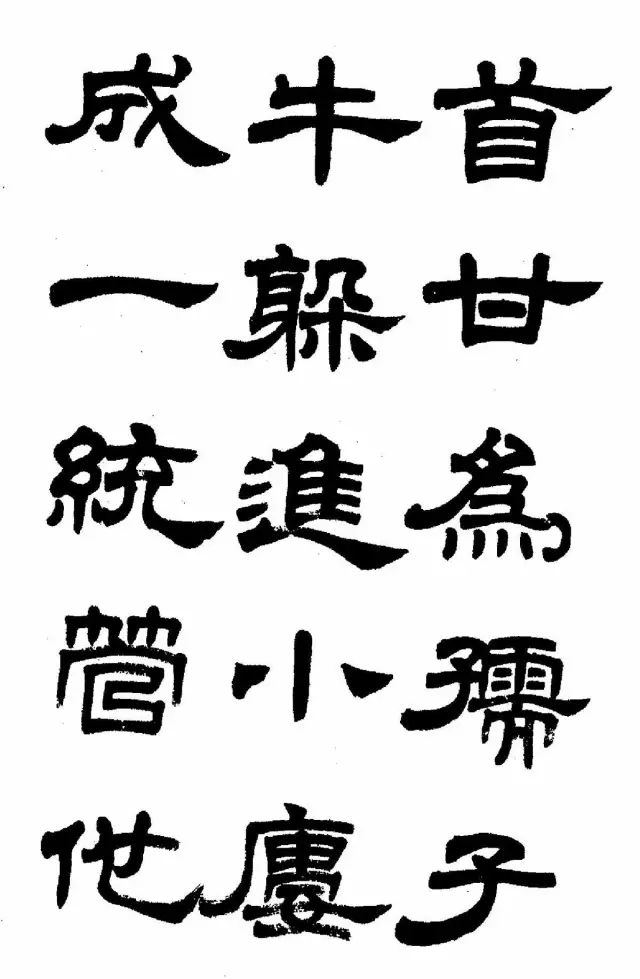 首甘為孺子
牛躲進小廔
成一統管他